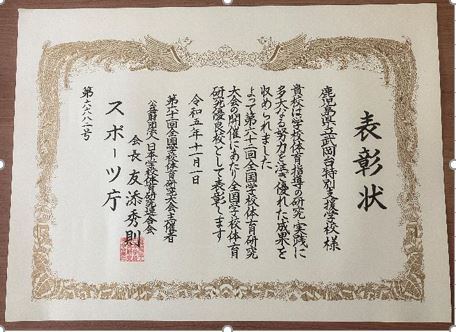 表彰状
鹿児島県立武岡台特別支援学校様
貴校は学校体育指導の研究実践に
多大なる努力を注ぎ優れた成果を
収められました
よって第六十二回全国学校体育研究
大会の開催にあたり全国学校体育
研究優良校として表彰します
令和五年十一月一日
第六十二回全国学校体育研究大会主催者
公益財団法人日本学校体育研究連合会
会長 友添秀則
スポーツ庁